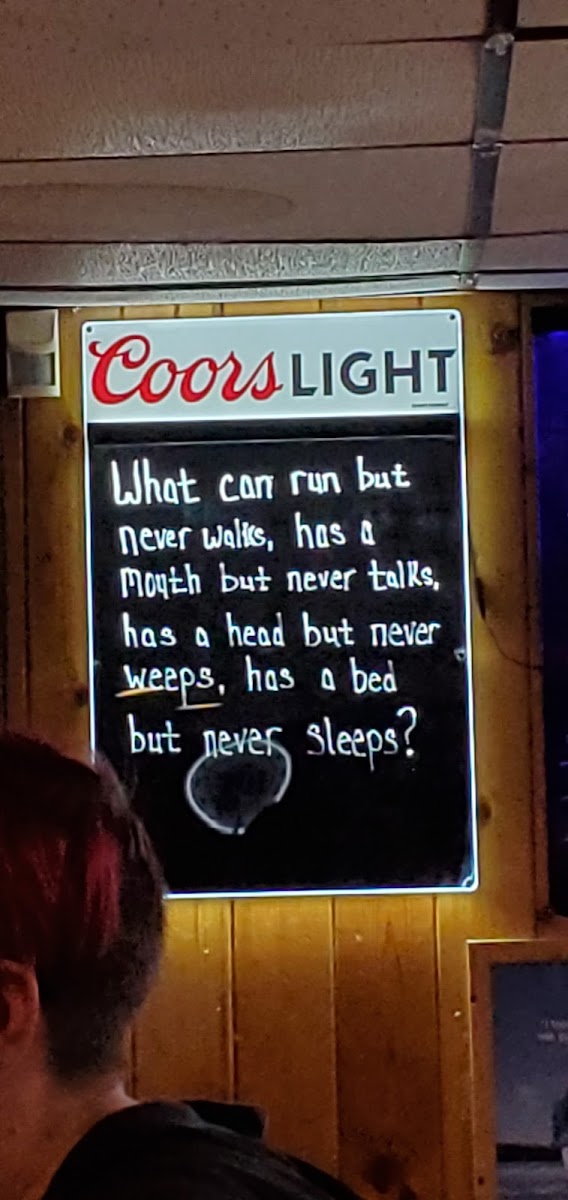 Coors LIGHT
What can run but
never walks, has a
mouth but never talks,
has a head but never
weeps, has a bed
but never sleeps?